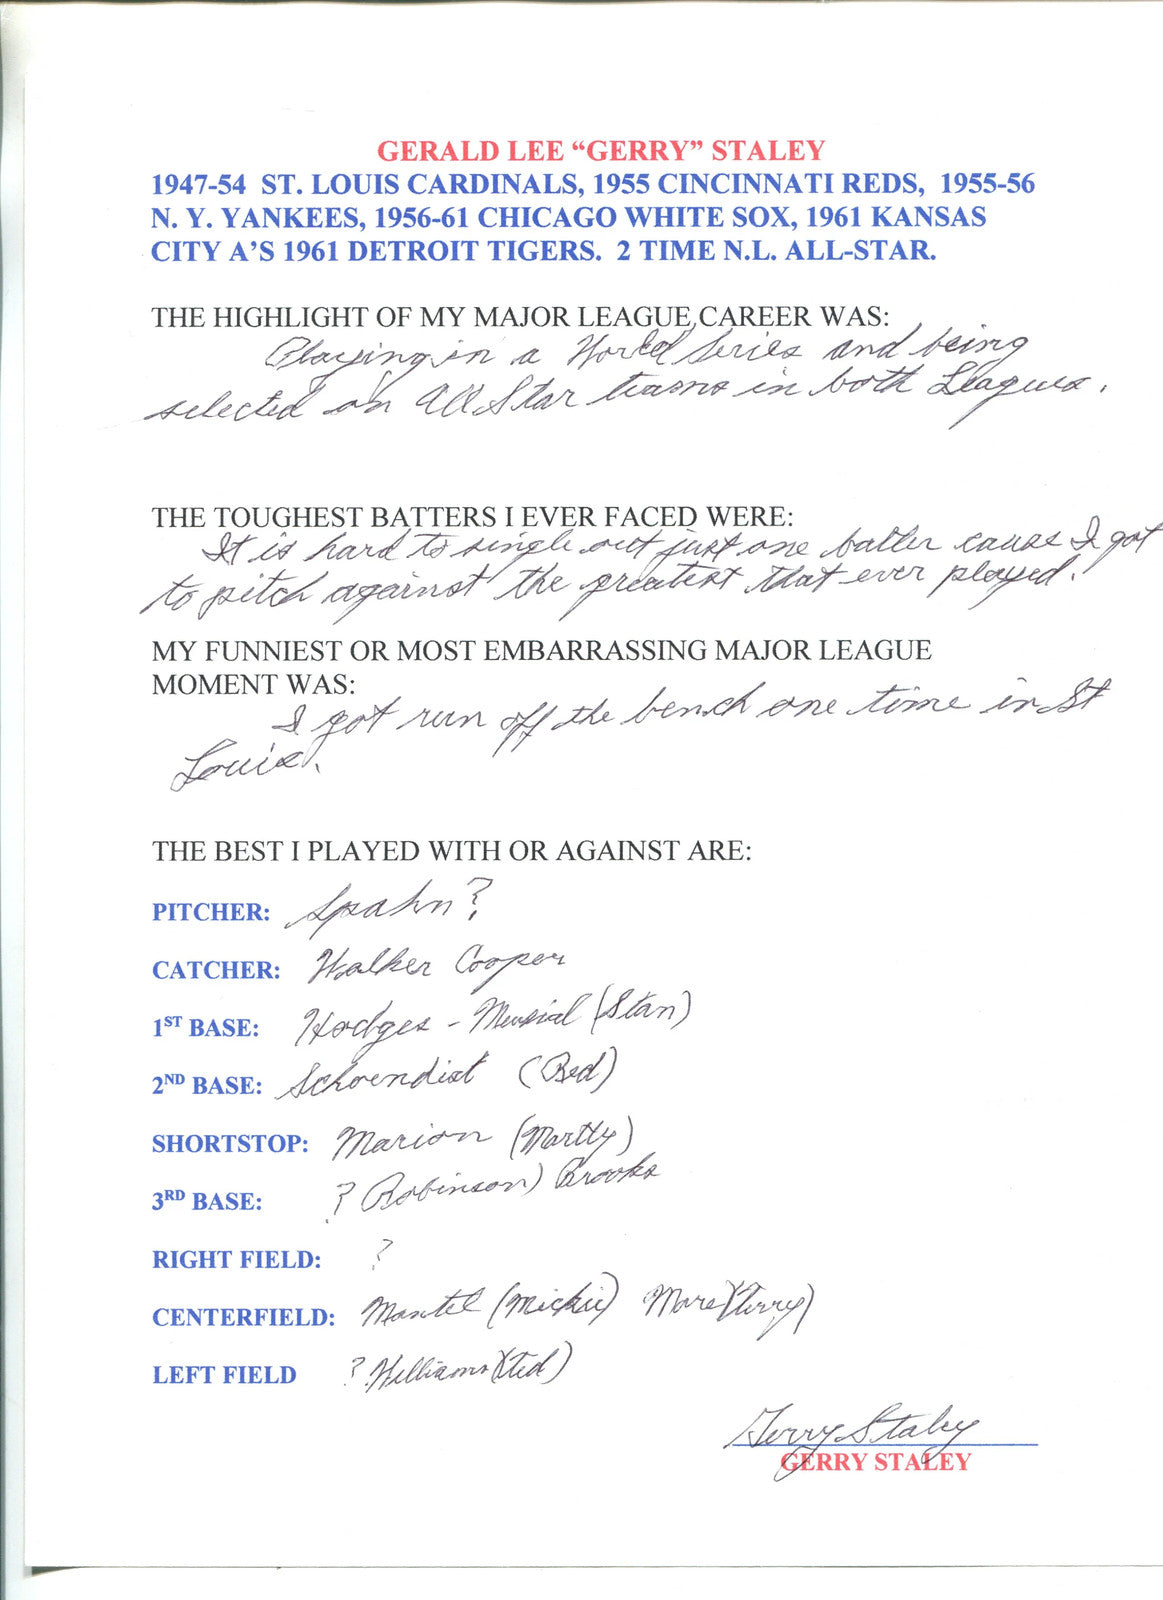 GERALD LEE “GERRY” STALEY
1947-54 ST. LOUIS CARDINALS, 1955 CINCINNATI REDS, 1955-56
N. Y. YANKEES, 1956-61 CHICAGO WHITE SOX, 1961 KANSAS
CITY A’S 1961 DETROIT TIGERS. 2 TIME N.L. ALL-STAR.
THE HIGHLIGHT OF MY MAJOR LEAGUE CAREER WAS:
Playing in a World Series and being
selected on All Star teams in both Leagues.
THE TOUGHEST BATTERS I EVER FACED WERE:
It is hard to single out just one batter cause I got
to pitch against the greatest that ever played.
MY FUNNIEST OR MOST EMBARRASSING MAJOR LEAGUE
MOMENT WAS:
I got run off the bench one time in St
Louis.
THE BEST I PLAYED WITH OR AGAINST ARE:
PITCHER: Spahn?
CATCHER: Walker Cooper
1ST BASE: Hodges - Musial (Stan)
2ND BASE: Schoendist (Red)
SHORTSTOP: Marion (Martty)
3RD BASE: ? Robinson) Brooks
RIGHT FIELD: ?
CENTERFIELD: Mantel (Mickie)
LEFT FIELD ? Williams (Ted)
Gerry Staley
GERRY STALEY